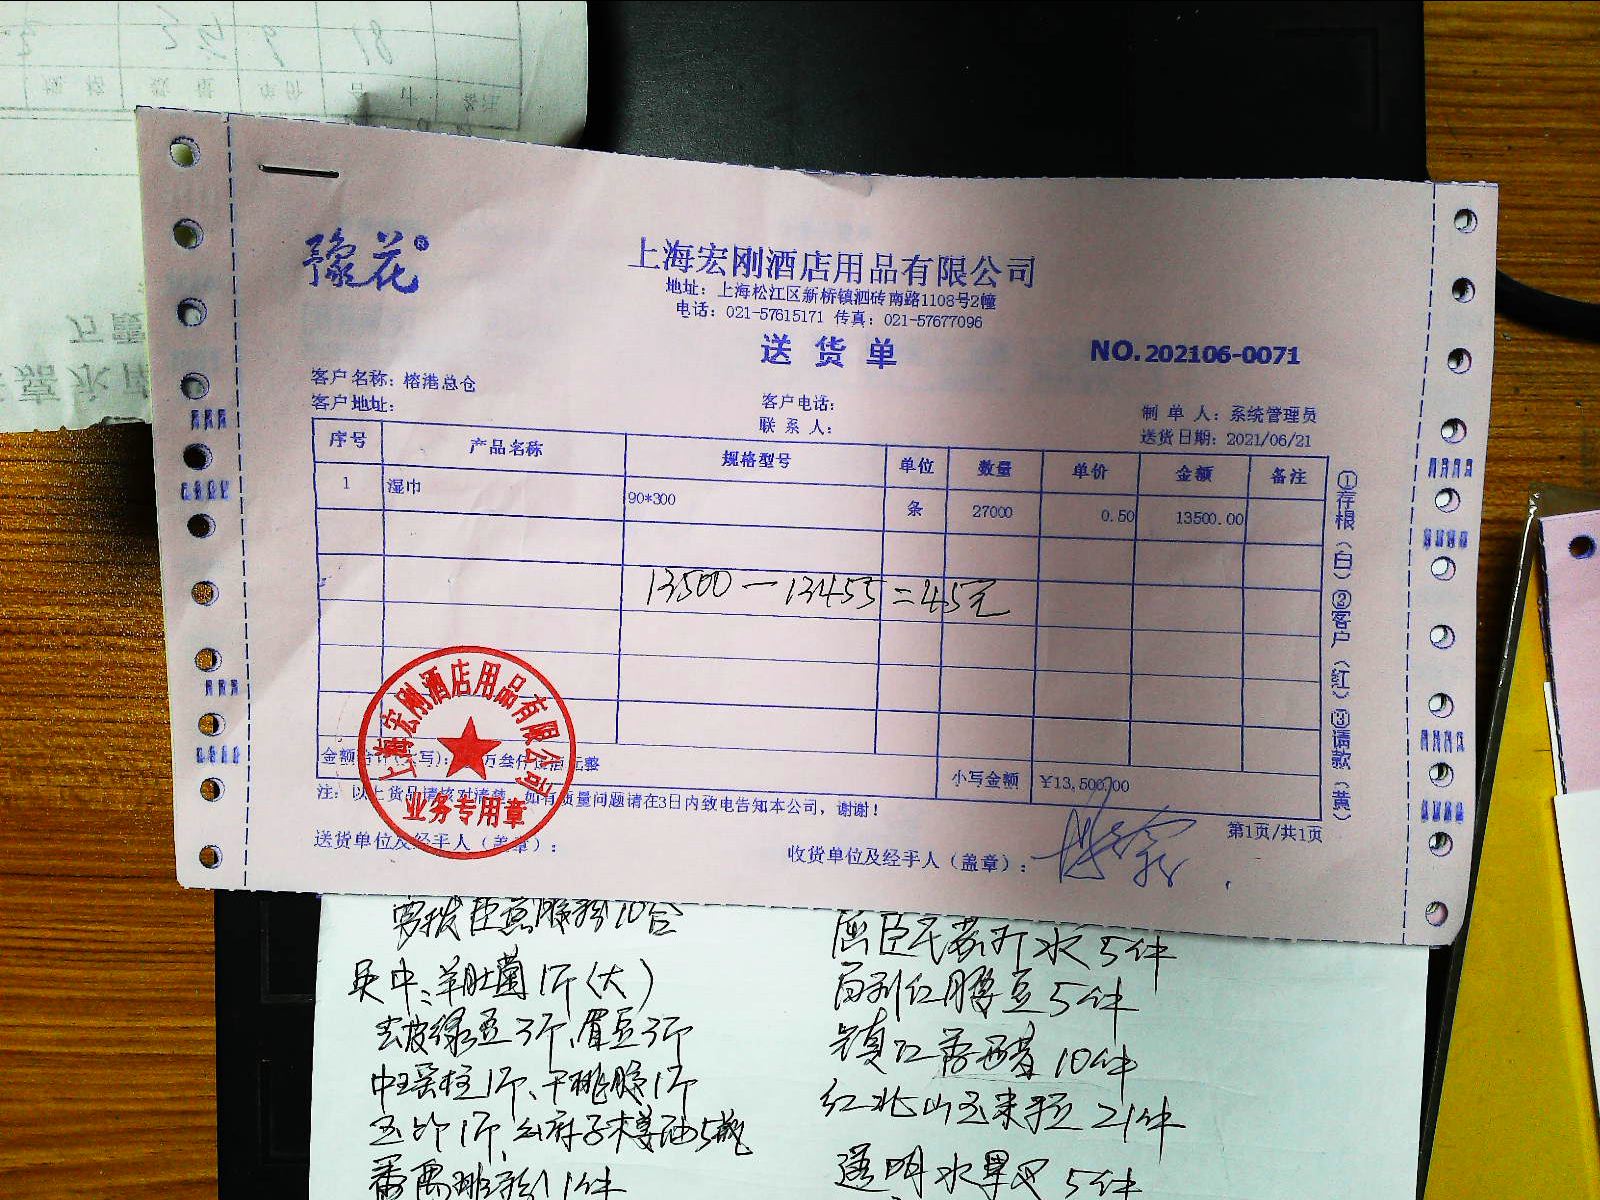 豫花®
上海宏刚酒店用品有限公司
地址：上海松江区新桥镇泗砖南路1108号2幢
电话：021-57615171 传真：021-57677096
送货单
NO.202106-0071
客户名称：榕港总仓
客户地址：
客户电话：
联系人：
制单人：系统管理员
送货日期：2021/06/21
序号 产品名称 规格型号 单位 数量 单价 金额 备注
1 湿巾 90*300 条 27000 0.50 13500.00
13500-13455=45元
金额合计(大写)： 万叁仟伍佰元整
小写金额 ¥13,500.00
注：以上货品请核对清楚，如有质量问题请在3日内致电告知本公司，谢谢！
送货单位及经手人（盖章）：
收货单位及经手人（盖章）：
第1页/共1页
①存根（白）②客户（红）③请款（黄）
上海宏刚酒店用品有限公司
业务专用章
10合
羊肚菌1斤(大)
去皮绿豆3斤、眉豆3斤
1斤、干桃胶1斤
1斤 5瓶
番禺 1件
屈臣氏苏打水5件
5件
镇江香醋10件
红北山玉米粒21件
透明水果叉5件